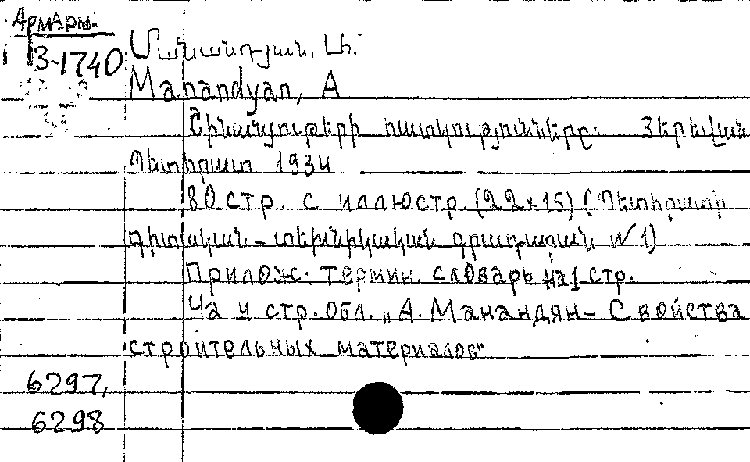 АрмАрм.
3-1740
Մանանդյան, Ա.
Manandyan, A
Շինանյութերի հատկությունները. Յերեվան
Պետհրատ 1934
80 стр. с иллюстр. (22×15) (Պետհրատի
գիտական-տեխնիկական գրադարան №1)
Прилож. термин. словарь на 1 стр.
На 4 стр. обл. „А. Манандян - Свойства
строительных материалов"
6297,
6298